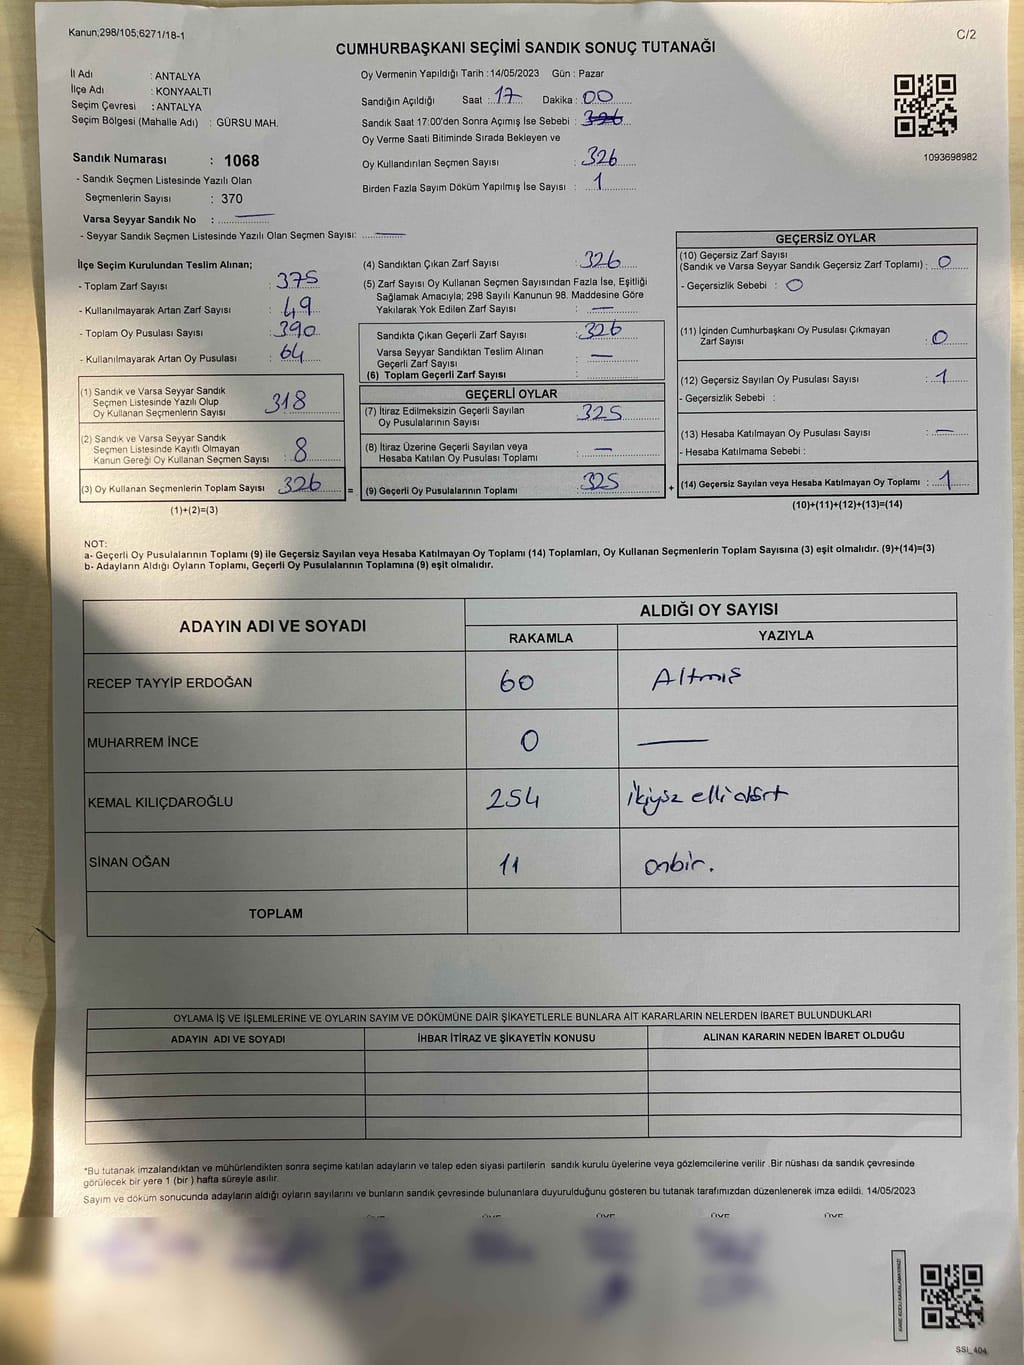 Kanun;298/105;6271/18-1
C/2
CUMHURBAŞKANI SEÇİMİ SANDIK SONUÇ TUTANAĞI
İl Adı : ANTALYA
İlçe Adı : KONYAALTI
Seçim Çevresi : ANTALYA
Seçim Bölgesi (Mahalle Adı) : GÜRSU MAH.
Sandık Numarası : 1068
- Sandık Seçmen Listesinde Yazılı Olan
Seçmenlerin Sayısı : 370
Varsa Seyyar Sandık No : —
- Seyyar Sandık Seçmen Listesinde Yazılı Olan Seçmen Sayısı: —
Oy Vermenin Yapıldığı Tarih : 14/05/2023 Gün : Pazar
Sandığın Açıldığı Saat : 17 Dakika : 00
Sandık Saat 17:00'den Sonra Açımış İse Sebebi : 326
Oy Verme Saati Bitiminde Sırada Bekleyen ve
Oy Kullandırılan Seçmen Sayısı : 326
Birden Fazla Sayım Döküm Yapılmış İse Sayısı : 1
1093698982
İlçe Seçim Kurulundan Teslim Alınan;
- Toplam Zarf Sayısı : 375
- Kullanılmayarak Artan Zarf Sayısı : 49
- Toplam Oy Pusulası Sayısı : 390
- Kullanılmayarak Artan Oy Pusulası : 64
(1) Sandık ve Varsa Seyyar Sandık
Seçmen Listesinde Yazılı Olup
Oy Kullanan Seçmenlerin Sayısı : 318
(2) Sandık ve Varsa Seyyar Sandık
Seçmen Listesinde Kayıtlı Olmayan
Kanun Gereği Oy Kullanan Seçmen Sayısı : 8
(3) Oy Kullanan Seçmenlerin Toplam Sayısı : 326 =
(1)+(2)=(3)
(4) Sandıktan Çıkan Zarf Sayısı : 326
(5) Zarf Sayısı Oy Kullanan Seçmen Sayısından Fazla İse, Eşitliği
Sağlamak Amacıyla; 298 Sayılı Kanunun 98. Maddesine Göre
Yakılarak Yok Edilen Zarf Sayısı : —
Sandıkta Çıkan Geçerli Zarf Sayısı : 326
Varsa Seyyar Sandıktan Teslim Alınan
Geçerli Zarf Sayısı : —
(6) Toplam Geçerli Zarf Sayısı :
GEÇERLİ OYLAR
(7) İtiraz Edilmeksizin Geçerli Sayılan
Oy Pusulalarının Sayısı : 325
(8) İtiraz Üzerine Geçerli Sayılan veya
Hesaba Katılan Oy Pusulası Toplamı : —
(9) Geçerli Oy Pusulalarının Toplamı : 325 +
GEÇERSİZ OYLAR
(10) Geçersiz Zarf Sayısı
(Sandık ve Varsa Seyyar Sandık Geçersiz Zarf Toplamı) : 0
- Geçersizlik Sebebi : 0
(11) İçinden Cumhurbaşkanı Oy Pusulası Çıkmayan
Zarf Sayısı : 0
(12) Geçersiz Sayılan Oy Pusulası Sayısı : 1
- Geçersizlik Sebebi :
(13) Hesaba Katılmayan Oy Pusulası Sayısı : —
- Hesaba Katılmama Sebebi :
(14) Geçersiz Sayılan veya Hesaba Katılmayan Oy Toplamı : 1
(10)+(11)+(12)+(13)=(14)
NOT:
a- Geçerli Oy Pusulalarının Toplamı (9) ile Geçersiz Sayılan veya Hesaba Katılmayan Oy Toplamı (14) Toplamları, Oy Kullanan Seçmenlerin Toplam Sayısına (3) eşit olmalıdır. (9)+(14)=(3)
b- Adayların Aldığı Oyların Toplamı, Geçerli Oy Pusulalarının Toplamına (9) eşit olmalıdır.
ADAYIN ADI VE SOYADI
ALDIĞI OY SAYISI
RAKAMLA YAZIYLA
RECEP TAYYİP ERDOĞAN 60 Altmış
MUHARREM İNCE 0 —
KEMAL KILIÇDAROĞLU 254 İkiyüz elli dört
SİNAN OĞAN 11 onbir.
TOPLAM
OYLAMA İŞ VE İŞLEMLERİNE VE OYLARIN SAYIM VE DÖKÜMÜNE DAİR ŞİKAYETLERLE BUNLARA AİT KARARLARIN NELERDEN İBARET BULUNDUKLARI
ADAYIN ADI VE SOYADI İHBAR İTİRAZ VE ŞİKAYETİN KONUSU ALINAN KARARIN NEDEN İBARET OLDUĞU
*Bu tutanak imzalandıktan ve mühürlendikten sonra seçime katılan adayların ve talep eden siyasi partilerin sandık kurulu üyelerine veya gözlemcilerine verilir .Bir nüshası da sandık çevresinde
görülecek bir yere 1 (bir ) hafta süreyle asılır.
Sayım ve döküm sonucunda adayların aldığı oyların sayılarını ve bunların sandık çevresinde bulunanlara duyurulduğunu gösteren bu tutanak tarafımızdan düzenlenerek imza edildi. 14/05/2023
ÜYE ÜYE ÜYE ÜYE ÜYE
SSI_404